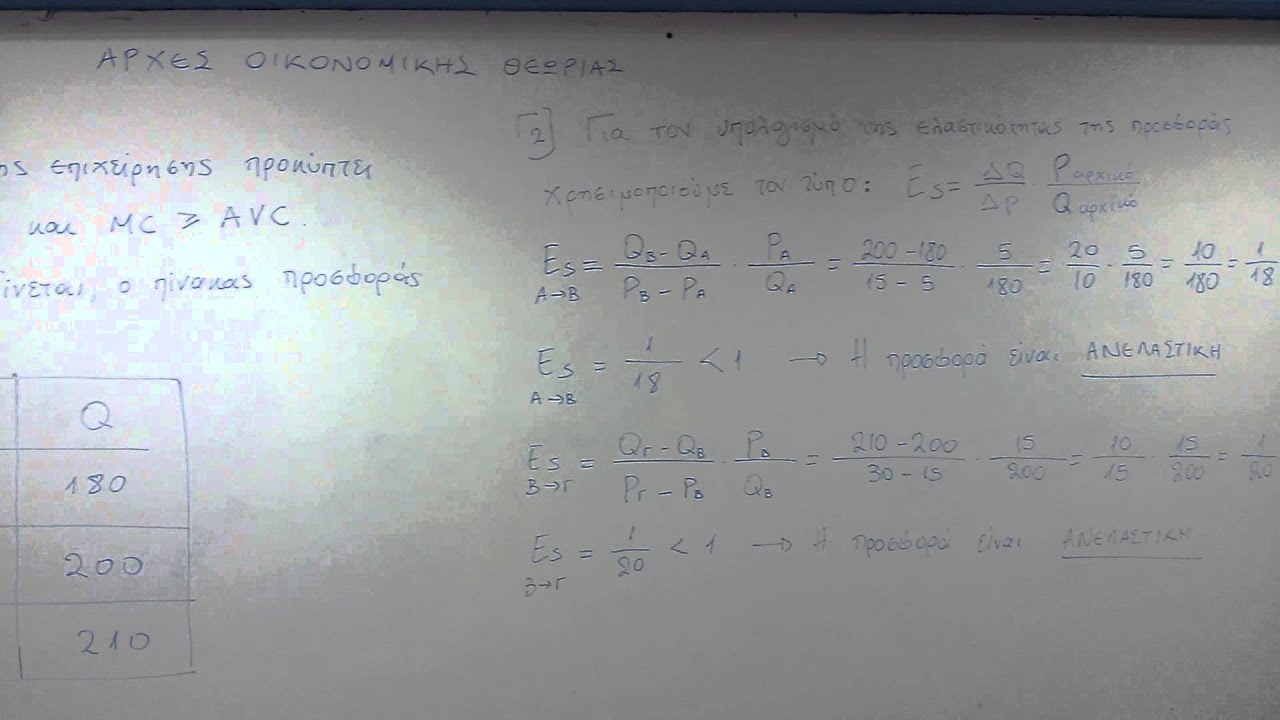 ΑΡΧΕΣ ΟΙΚΟΝΟΜΙΚΗΣ ΘΕΩΡΙΑΣ
ης επιχείρησης προκύπτει
και MC ≥ AVC.
ίνεται, ο πίνακας προσφοράς
Q
180
200
210
Γ2] Για τον υπολογισμό της ελαστικότητας της προσφοράς
χρησιμοποιούμε τον τύπο: Es = ΔQ/ΔP · Pαρχικό/Qαρχικό
Es A→B = (QB - QA)/(PB - PA) · PA/QA = (200 - 180)/(15 - 5) · 5/180 = 20/10 · 5/180 = 10/180 = 1/18
Es A→B = 1/18 < 1 → Η προσφορά είναι ΑΝΕΛΑΣΤΙΚΗ
Es B→Γ = (QΓ - QB)/(PΓ - PB) · PB/QB = (210 - 200)/(30 - 15) · 15/200 = 10/15 · 15/200 = 1/20
Es B→Γ = 1/20 < 1 → Η προσφορά είναι ΑΝΕΛΑΣΤΙΚΗ